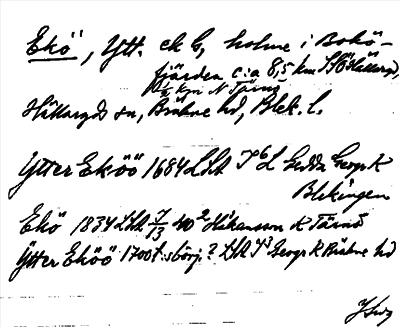 Ekö, Ytt. ek G, holme i Bokö-
fjärden c:a 8,5 km SSÖ Hällaryd,
km N Tärnö
Hällaryds sn, Bräkne hd, Blek. l.
Ytter Eköö 1684 LSA Gedda Geogr K
Blekingen
Ekö 1834 LSA Håkansson K Tärnö
Ytter Eköö 1700 t:s börj.? LSA Geogr K Bräkne hd